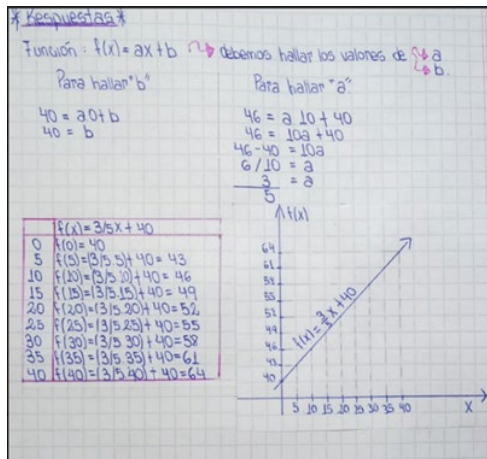 *Respuestas*
Función: f(x) = ax+b debemos hallar los valores de a
b.
Para hallar "b"
40 = a.0+b
40 = b
Para hallar "a".
46 = a 10 + 40
46 = 10a + 40
46-40 = 10a
6/10 = a
3/5 = a
f(x) = 3/5x + 40
0 f(0) = 40
5 f(5) = (3/5 5) + 40 = 43
10 f(10) = (3/5 10) + 40 = 46
15 f(15) = (3/5.15) + 40 = 49
20 f(20) = (3/5.20) + 40 = 52
25 f(25) = (3/5.25) + 40 = 55
30 f(30) = (3/5 30) + 40 = 58
35 f(35) = (3/5 35) + 40 = 61
40 f(40) = (3/5 40) + 40 = 64
f(x)
64
61
58
55
52
49
46
43
40
f(x) = 3/5 x + 40
5 10 15 20 25 30 35 40 X